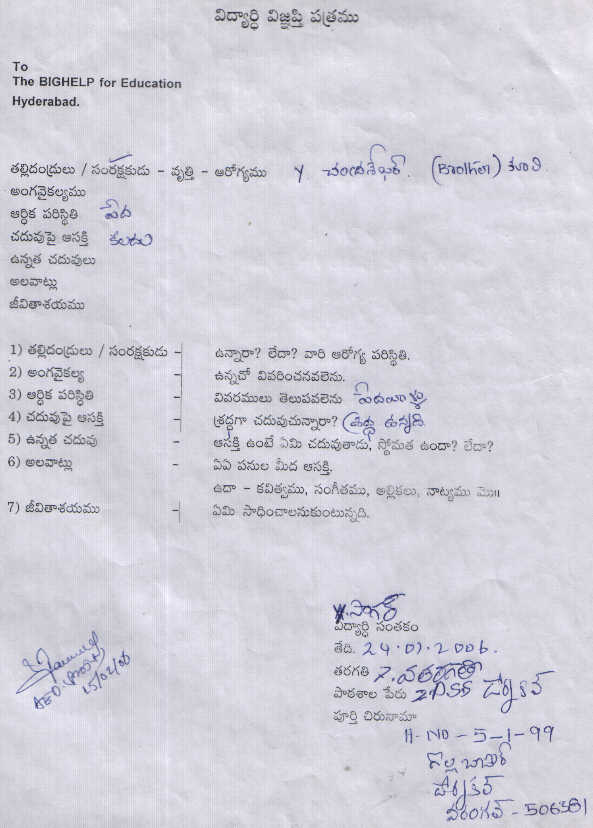 విద్యార్ధి విజ్ఞప్తి పత్రము
To
The BIGHELP for Education
Hyderabad.
తల్లిదండ్రులు / సంరక్షకుడు - వృత్తి - ఆరోగ్యము Y చంద్రశేఖర్. (Brother) కూలి
అంగవైకల్యము
ఆర్ధిక పరిస్థితి పేద
చదువుపై ఆసక్తి కలదు
ఉన్నత చదువులు
అలవాట్లు
జీవితాశయము
1) తల్లిదండ్రులు / సంరక్షకుడు - ఉన్నారా? లేదా? వారి ఆరోగ్య పరిస్థితి.
2) అంగవైకల్య - ఉన్నచో వివరించనవలెను.
3) ఆర్ధిక పరిస్థితి - వివరములు తెలుపవలెను పేదవాళ్ళు
4) చదువుపై ఆసక్తి - శ్రద్ధగా చదువుచున్నారా? శ్రద్ధ ఉన్నది
5) ఉన్నత చదువు - ఆసక్తి ఉంటే ఏమి చదువుతాడు, స్తోమత ఉందా? లేదా?
6) అలవాట్లు - ఏఏ పనుల మీద ఆసక్తి.
ఉదా - కవిత్వము, సంగీతము, అల్లికలు, నాట్యము మొ॥
7) జీవితాశయము - ఏమి సాధించాలనుకుంటున్నది.
Y. సాగర్
విద్యార్ధి సంతకం
తేది. 24.02.2006.
తరగతి 7. వతరగతి
పాఠశాల పేరు ZPSS డోర్నకల్
పూర్తి చిరునామా
H-NO-5-1-99
గొల్ల బజార్
డోర్నకల్
వరంగల్ - 506381
15/02/06